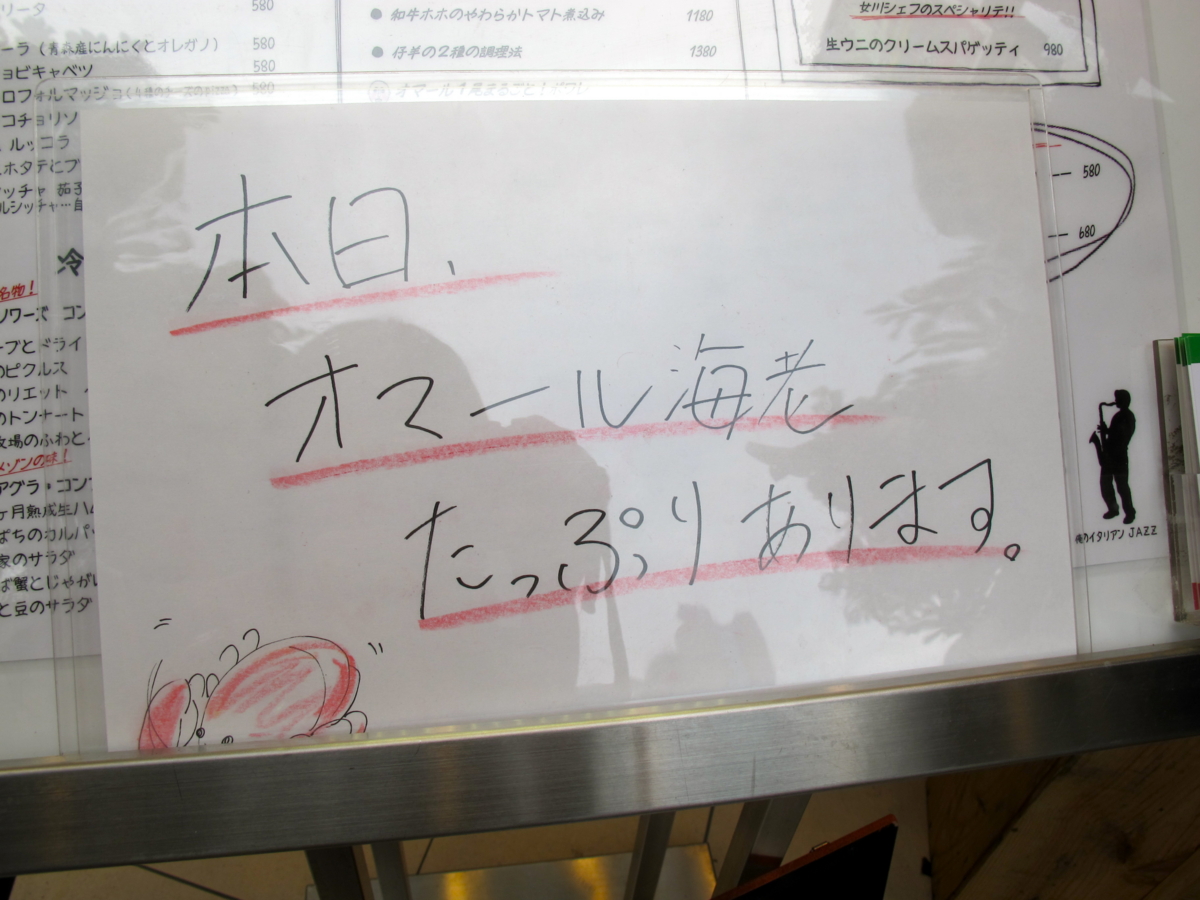 リータ 580
ーラ（青森産にんにくとオレガノ） 580
ョビキャベツ 580
ロフォルマッジョ 580
コチョリソ
ルッコラ
ホタテとブ
ッチャ 茄子
ルシッチャ…自
冷
名物！
ノワーズ コン
ープとドライ
のピクルス
のリエット
のトンナート
牧場のふわと
メゾンの味！
アグラ・コンフ
ヶ月熟成生ハム
ぱちのカルパ
家のサラダ
ば蟹とじゃがい
と豆のサラダ
● 和牛ホホのやわらかトマト煮込み 1180
● 仔羊の2種の調理法 1380
オマール1尾まるごと！ポワレ
女川シェフのスペシャリテ!!
生ウニのクリームスパゲッティ 980
580
680
本日、
オマール海老
たっぷりあります。
俺のイタリアン JAZZ